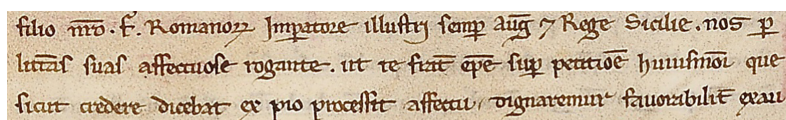 filio nr̄o . F̄. Romanoꝝ Imꝑatore illustri semꝑ auḡ ⁊ Rege Sicilie . nos ꝑ
litt̄as suas affectuose rogante . ut te frat̄ ep̄e suꝑ petitiōe huiusmōi que
sicut credere dicebat ex pio processit affectu , dignaremur fauorabilit̄ exau